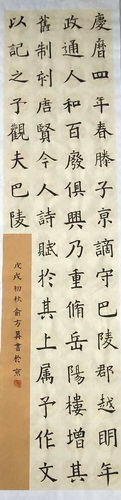 慶曆四年春滕子京謫守巴陵郡越明年
政通人和百廢俱興乃重脩岳陽樓增其
舊制刻唐賢今人詩賦於其上属予作文
以記之予觀夫巴陵
戊戌初秋俞方募書於京